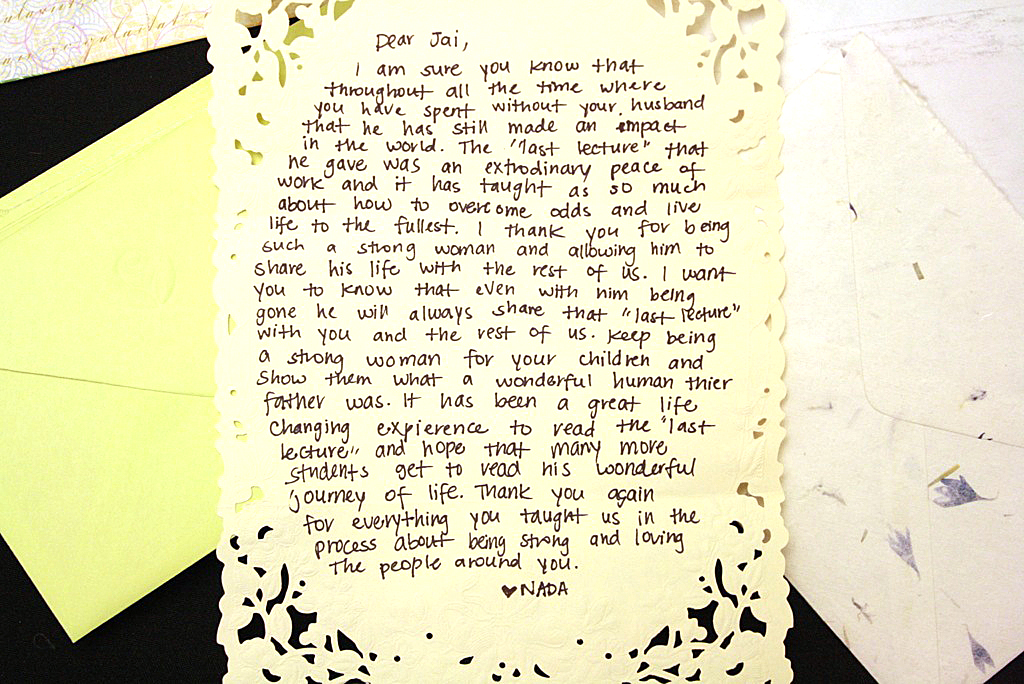 Dear Jai,
I am sure you know that
throughout all the time where
you have spent without your husband
that he has still made an empact
in the world. The "last lecture" that
he gave was an extrodinary peace of
work and it has taught as so much
about how to overcome odds and live
life to the fullest. I thank you for being
such a strong woman and allowing him to
share his life with the rest of us. I want
you to know that even with him being
gone he will always share that "last lecture"
with you and the rest of us. Keep being
a strong woman for your children and
show them what a wonderful human thier
father was. It has been a great life
changing expierence to read the "last
lecture" and hope that many more
students get to read his wonderful
journey of life. Thank you again
for everything you taught us in the
process about being strong and loving
the people around you.
♥NADA